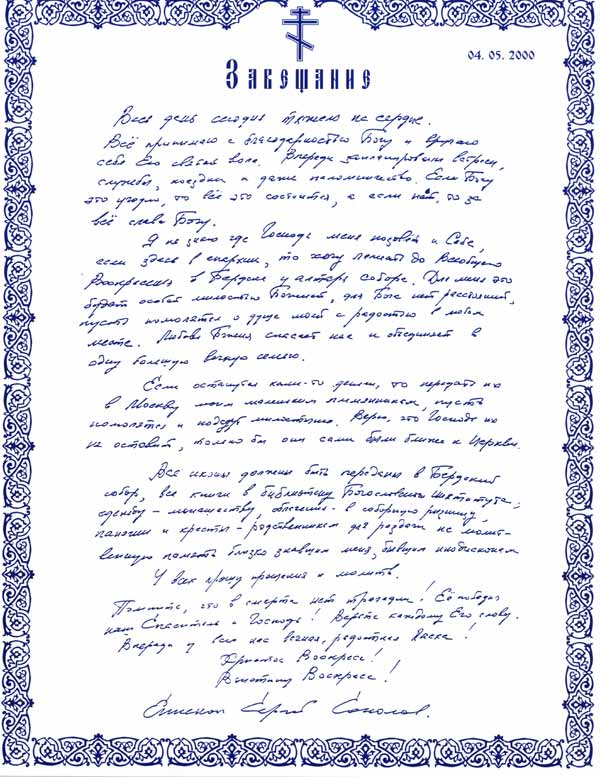 04. 05. 2000
Завещание
Весь день сегодня тяжело на сердце.
Всё принимаю с благодарностью Богу и вручаю
себя Его святой воле. Впереди запланированы встречи,
службы, поездки и даже паломничество. Если Богу
это угодно, то всё это состоится, а если нет, то за
всё слава Богу.
Я не знаю где Господь меня позовёт к Себе,
если здесь в епархии, то хочу лежать до Всеобщего
Воскресения в Бердске у алтаря собора. Для меня это
будет особой милостью Божией, для Бога нет расстояний,
пусть помолятся о душе моей с радостью в любом
месте. Любовь Божия спасает нас и объединяет в
одну большую вечную семью.
Если останутся какие-то деньги, то передать их
в Москву моим маленьким племянникам, пусть
помолятся и подадут милостыню. Верю, что Господь их
не оставит, только бы они сами были ближе к Церкви.
Все иконы должны быть переданы в Бердский
собор, все книги в библиотеку Богословского Института;
одежду - монашеству, облачения - в соборную ризницу,
панагии и кресты - родственникам для раздачи на молит-
венную память близко знавшим меня, бывшим иподиаконам
У всех прошу прощения и молитв.
Помните, что в смерти нет трагедии! Её победил
наш Спаситель и Господь! Верьте каждому Его слову.
Впереди у всех нас вечная, радостная Пасха!
Христос Воскресе!
Воистину Воскресе!
Епископ Сергий Соколов.